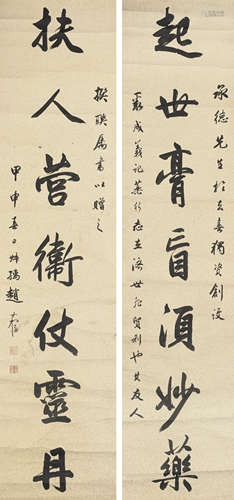 起世膏肓須妙藥
承德先生於今春獨資創設
義成義記藥行志在濟世非貿利也其友人
扶人營衛仗靈丹
撰聯屬書以贈之
甲申春日
趙